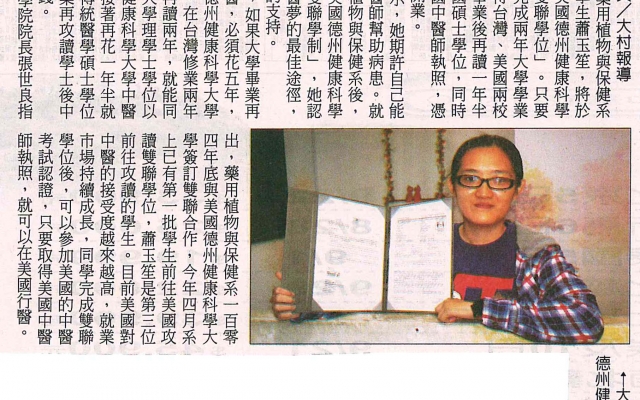 ╱大村報導
藥用植物與保健系
學生蕭玉笙，將於
美國德州健康科學
雙聯學位」。只要
完成兩年大學學業
得台灣、美國兩校
畢業後再讀一年半
國碩士學位，同時
國中醫師執照，憑
師業。
示，她期許自己能
醫師幫助病患。就
植物與保健系後，
美國德州健康科學
雙聯學制」，她認
醫夢的最佳途徑，
的支持。
，如果大學畢業再
醫，必須花五年，
德州健康科學大學
，在台灣修業兩年
再讀兩年，就能同
大學理學士學位以
健康科學大學中醫
接著再花一年半就
傳統醫學碩士學位
業再攻讀學士後中
錢。
學院院長張世良指
出，藥用植物與保健系一百零
四年底與美國德州健康科學大
學簽訂雙聯合作，今年四月系
上已有第一批學生前往美國攻
讀雙聯學位，蕭玉笙是第三位
前往攻讀的學生。目前美國對
中醫的接受度越來越高，就業
市場持續成長，同學完成雙聯
學位後，可以參加美國的中醫
考試認證，只要取得美國中醫
師執照，就可以在美國行醫。
↑大
德州健